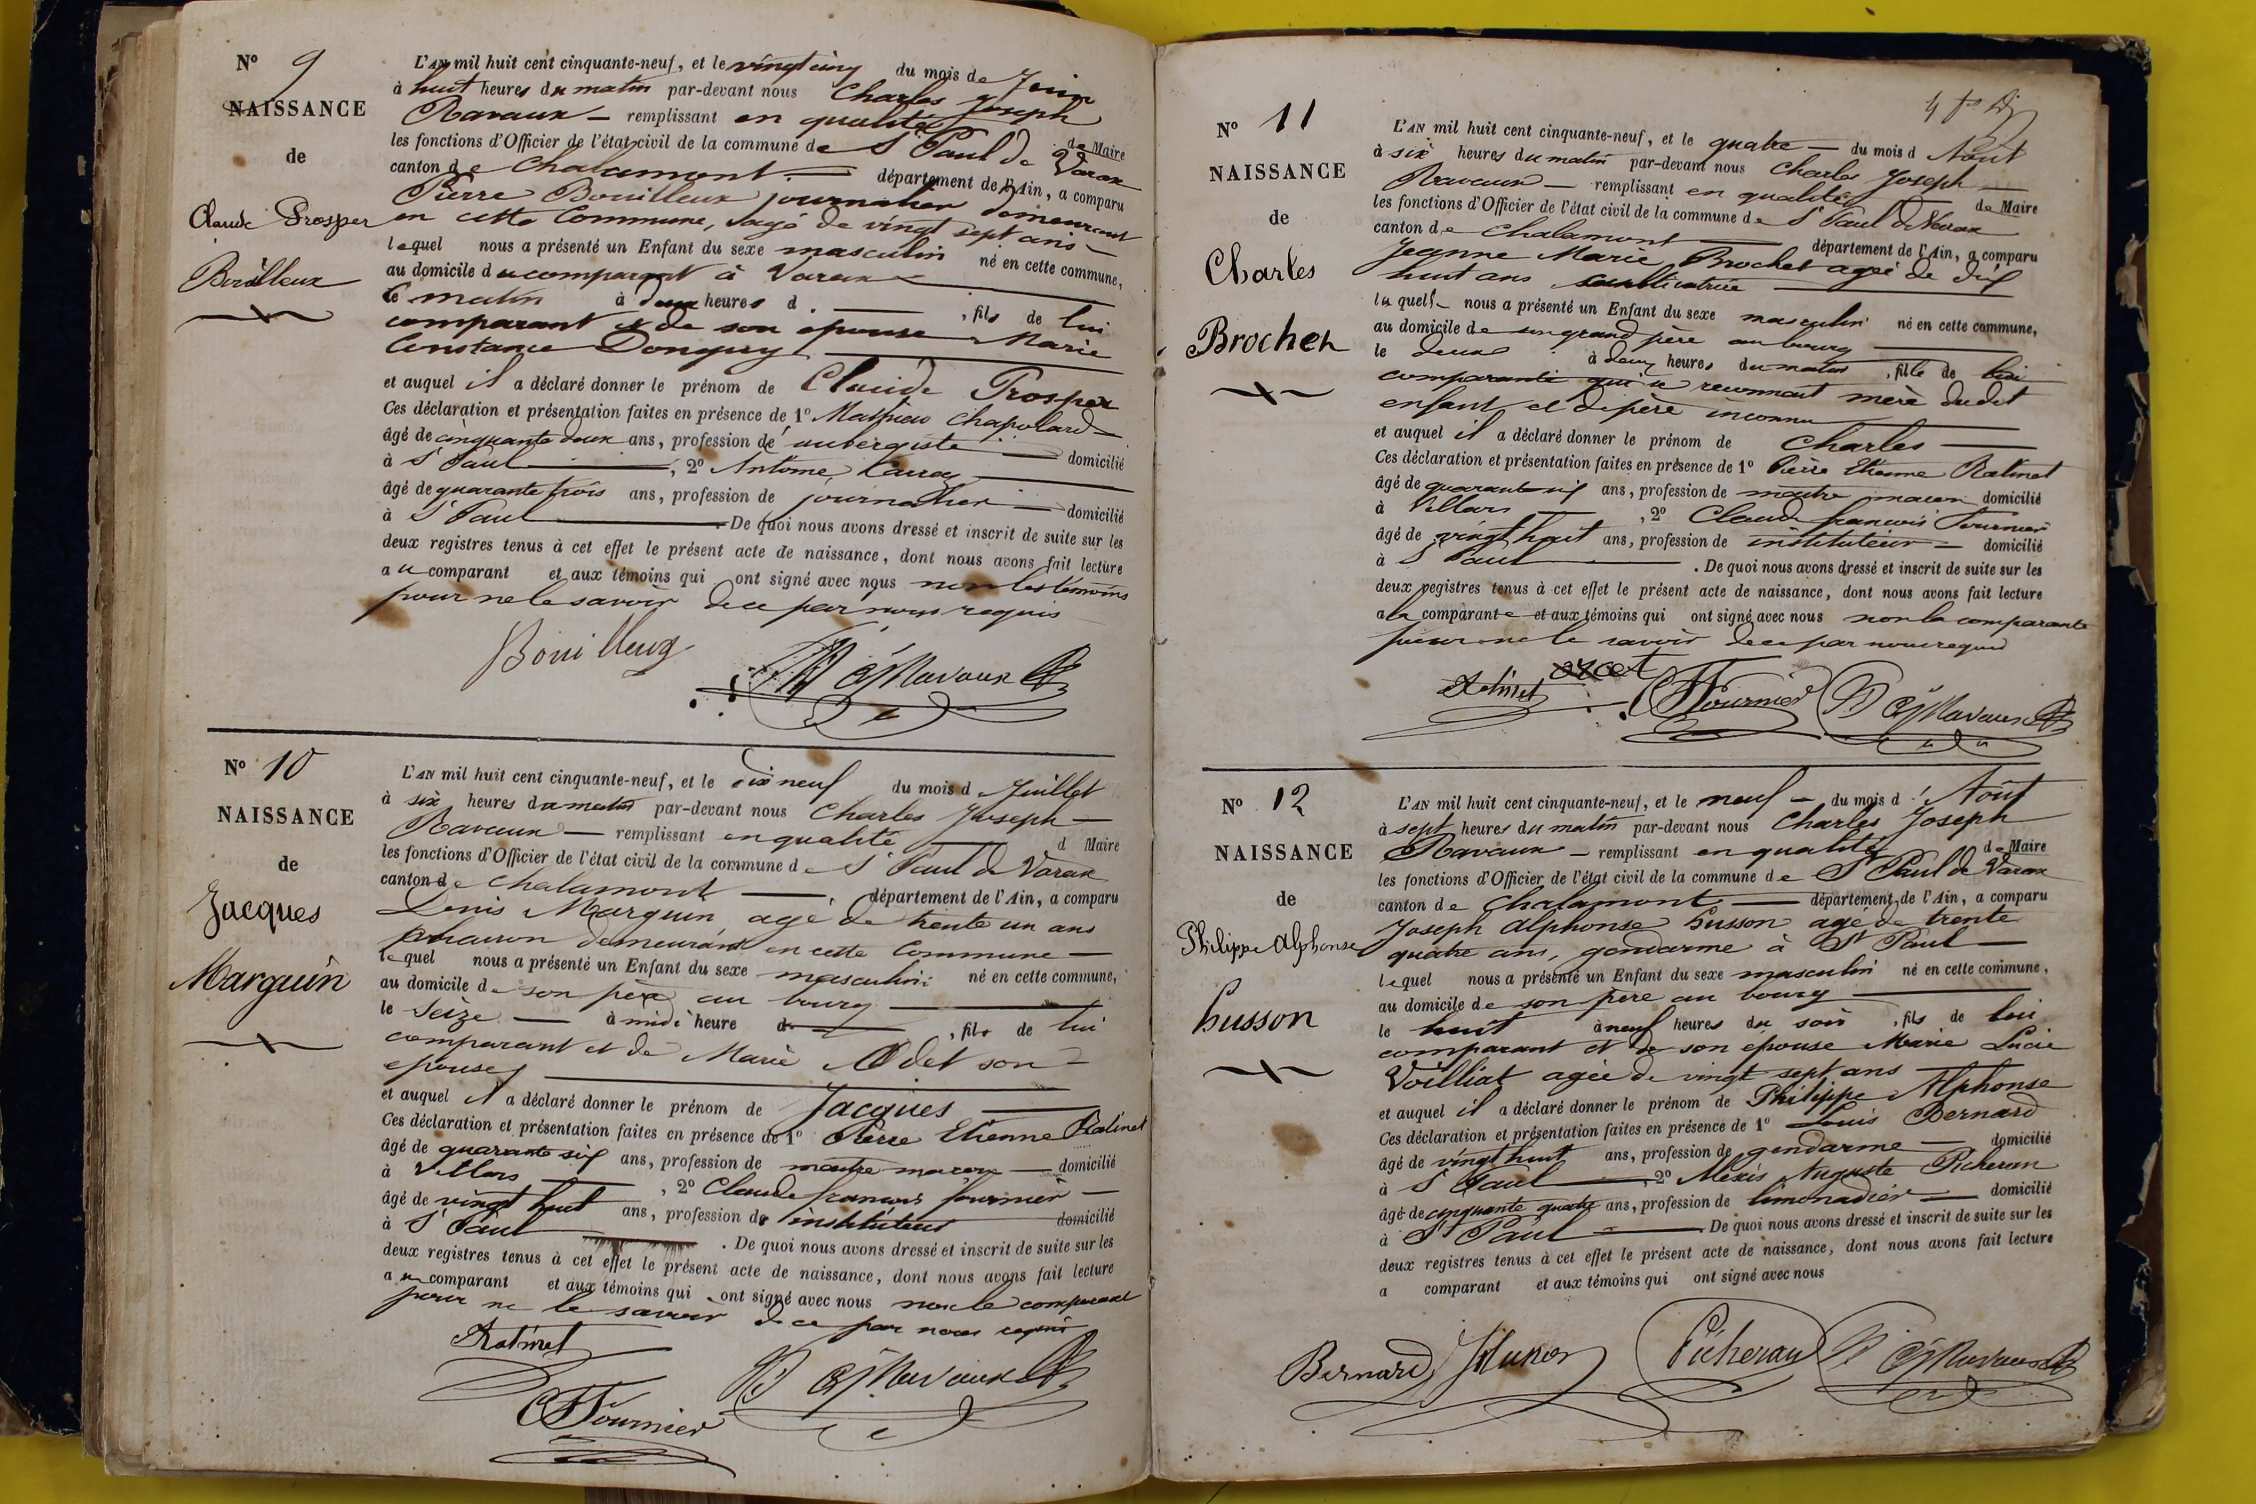 N° 9
NAISSANCE
de
Claude Prosper
Bouilleux
L'AN mil huit cent cinquante-neuf, et le vingt cinq du mois de Juin
à huit heures du matin par-devant nous Charles Joseph
Ravaux — remplissant en qualité de Maire
les fonctions d'Officier de l'état civil de la commune de St Paul de Varax
canton de Chalamont — département de l'Ain, a comparu
Pierre Bouilleux journalier demeurant
en cette Commune, âgé de vingt sept ans —
lequel nous a présenté un Enfant du sexe masculin né en cette commune,
au domicile du comparant à Varax
ce matin à deux heures d — , fils de lui
comparant & de son épouse Marie
Constance Donguy
et auquel il a déclaré donner le prénom de Claude Prosper
Ces déclaration et présentation faites en présence de 1° Mathieu Chapolard —
âgé de cinquante deux ans, profession de aubergiste — domicilié
à St Paul — , 2° Antoine
âgé de quarante trois ans, profession de journalier — domicilié
à St Paul — De quoi nous avons dressé et inscrit de suite sur les
deux registres tenus à cet effet le présent acte de naissance, dont nous avons fait lecture
au comparant et aux témoins qui ont signé avec nous non les témoins
pour ne le savoir de ce par nous requis
Bouilleux
CJ Ravaux
N° 10
NAISSANCE
de
Jacques
Marguin
L'AN mil huit cent cinquante-neuf, et le dix neuf du mois de Juillet
à six heures du matin par-devant nous Charles Joseph —
Ravaux — remplissant en qualité — d Maire
les fonctions d'Officier de l'état civil de la commune de St Paul de Varax
canton de Chalamont — département de l'Ain, a comparu
Denis Marguin agé de trente un ans
maçon demeurant en cette Commune —
lequel nous a présenté un Enfant du sexe masculin né en cette commune,
au domicile de son père au bourg —
le seize — à midi heure d — , fils de lui
comparant et de Marie Odet son
épouse —
et auquel il a déclaré donner le prénom de Jacques —
Ces déclaration et présentation faites en présence de 1° Pierre Etienne Ratinet
âgé de quarante six ans, profession de maitre maçon — domicilié
à Villars — , 2° Claude francois fournier —
âgé de vingt huit ans, profession de instituteur domicilié
à St Paul — . De quoi nous avons dressé et inscrit de suite sur les
deux registres tenus à cet effet le présent acte de naissance, dont nous avons fait lecture
au comparant et aux témoins qui ont signé avec nous non le comparant
pour ne le savoir de ce par nous requis
Ratinet
CJ Ravaux
CF Fournier
N° 11
NAISSANCE
de
Charles
Brochet
L'AN mil huit cent cinquante-neuf, et le quatre — du mois d Août
à six heures du matin par-devant nous Charles Joseph —
Ravaux — remplissant en qualité de Maire
les fonctions d'Officier de l'état civil de la commune de St Paul de Varax
canton de Chalamont — département de l'Ain, a comparu
Jeanne Marie Brochet agée de dix
huit ans cultivatrice —
laquelle nous a présenté un Enfant du sexe masculin né en cette commune,
au domicile de son grand père au bourg —
le deux à deux heures du matin , fils de lui
comparante qui se reconnait mère dudit
enfant et de père inconnu —
et auquel il a déclaré donner le prénom de Charles —
Ces déclaration et présentation faites en présence de 1° Pierre Etienne Ratinet
âgé de quarante six ans, profession de maitre macon domicilié
à Villars — , 2° Claude francois Fournier
âgé de vingt huit ans, profession de instituteur — domicilié
à St Paul — . De quoi nous avons dressé et inscrit de suite sur les
deux registres tenus à cet effet le présent acte de naissance, dont nous avons fait lecture
a la comparante et aux témoins qui ont signé avec nous non la comparante
pour ne le savoir de ce par nous requis
Ratinet
CF Fournier
CJ Ravaux
N° 12
NAISSANCE
de
Philippe Alphonse
husson
L'AN mil huit cent cinquante-neuf, et le neuf — du mois d Août
à sept heures du matin par-devant nous Charles Joseph
Ravaux — remplissant en qualité de Maire
les fonctions d'Officier de l'état civil de la commune de St Paul de Varax
canton de Chalamont — département de l'Ain, a comparu
Joseph Alphonse husson agé de trente
quatre ans, gendarme à St Paul —
lequel nous a présenté un Enfant du sexe masculin né en cette commune,
au domicile de son père au bourg —
le huit à neuf heures du soir , fils de lui
comparant et de son épouse Marie Lucie
Voilliat agée de vingt sept ans —
et auquel il a déclaré donner le prénom de Philippe Alphonse
Ces déclaration et présentation faites en présence de 1° Louis Bernard
âgé de vingt huit ans, profession de gendarme — domicilié
à St Paul — 2° Alexis Auguste Picheran
âgé de cinquante quatre ans, profession de limonadier — domicilié
à St Paul — De quoi nous avons dressé et inscrit de suite sur les
deux registres tenus à cet effet le présent acte de naissance, dont nous avons fait lecture
a comparant et aux témoins qui ont signé avec nous
Bernard
Husson
Picheran
CJ Ravaux